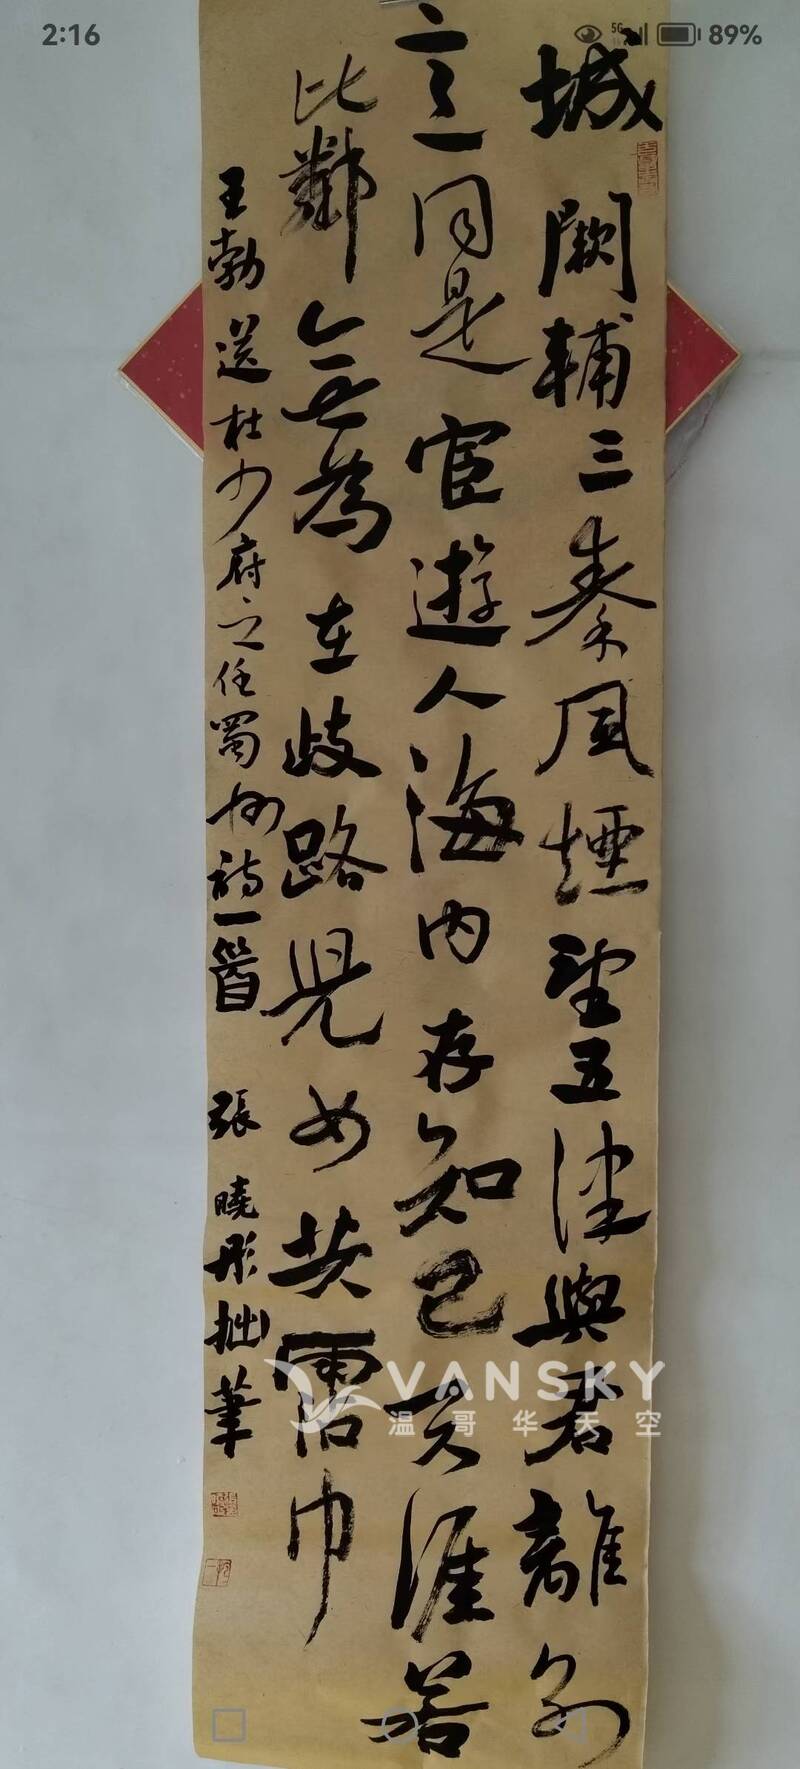 2:16
5G 89%
城闕輔三秦風煙望五津與君離別
意同是宦遊人海内存知己天涯若
比鄰無為在歧路兒女共霑巾
王勃送杜少府之任蜀州詩一首 張曉彤拙筆
VANSKY
温哥华天空